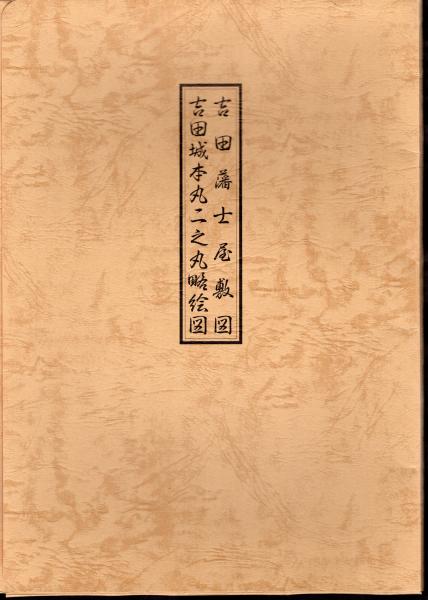 吉田藩士屋敷図
吉田城本丸二之丸略絵図